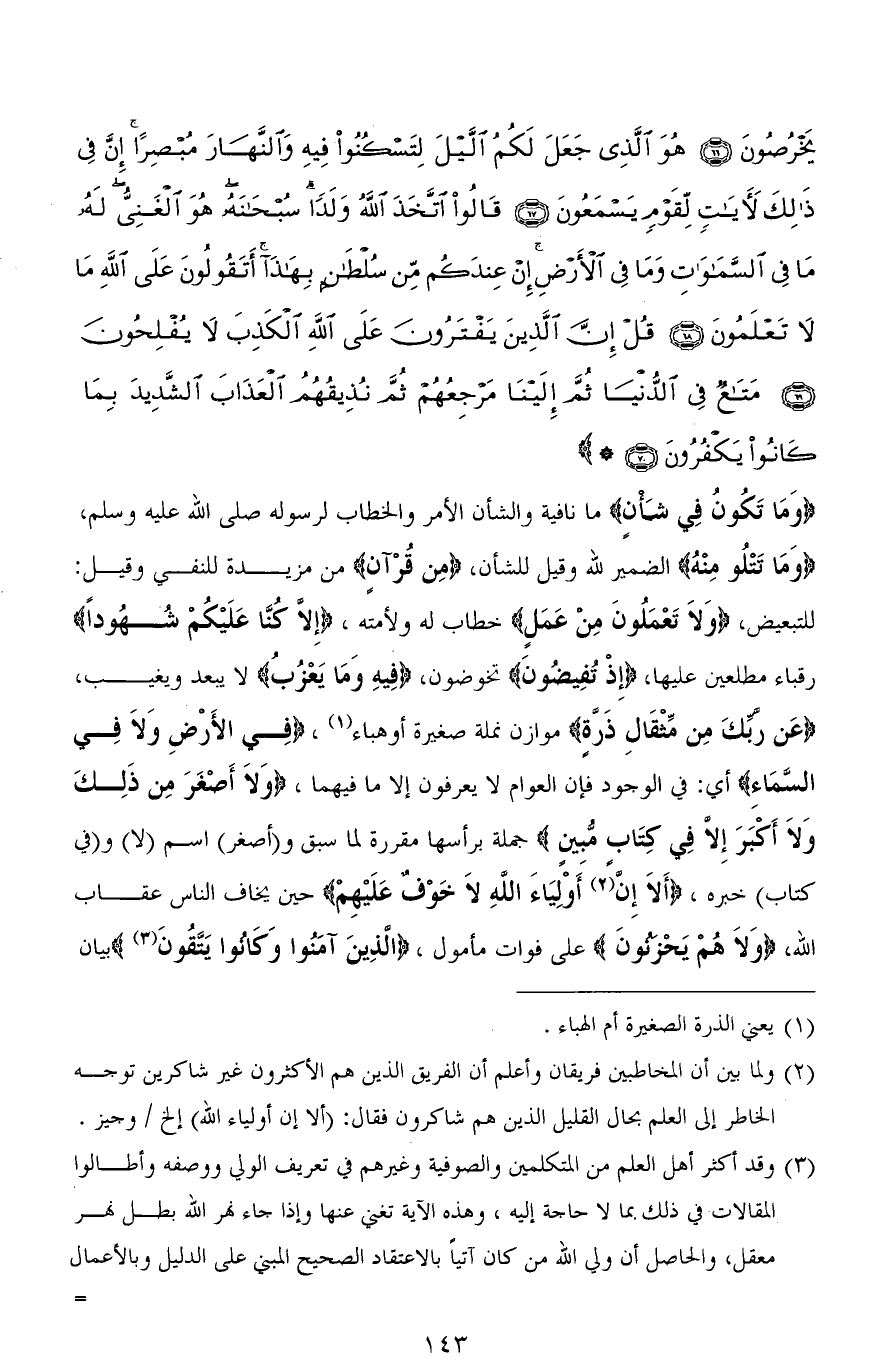 يَخْرُصُونَ ﴿٦٦﴾ هُوَ ٱلَّذِى جَعَلَ لَكُمُ ٱلَّيْلَ لِتَسْكُنُوا۟ فِيهِ وَٱلنَّهَارَ مُبْصِرًا ۚ إِنَّ فِى
ذَٰلِكَ لَأَيَٰتٍ لِّقَوْمٍ يَسْمَعُونَ ﴿٦٧﴾ قَالُوا۟ ٱتَّخَذَ ٱللَّهُ وَلَدًا ۗ سُبْحَٰنَهُۥ ۖ هُوَ ٱلْغَنِىُّ ۖ لَهُۥ
مَا فِى ٱلسَّمَٰوَٰتِ وَمَا فِى ٱلْأَرْضِ ۚ إِنْ عِندَكُم مِّن سُلْطَٰنٍۭ بِهَٰذَآ ۚ أَتَقُولُونَ عَلَى ٱللَّهِ مَا
لَا تَعْلَمُونَ ﴿٦٨﴾ قُلْ إِنَّ ٱلَّذِينَ يَفْتَرُونَ عَلَى ٱللَّهِ ٱلْكَذِبَ لَا يُفْلِحُونَ
﴿٦٩﴾ مَتَٰعٌ فِى ٱلدُّنْيَا ثُمَّ إِلَيْنَا مَرْجِعُهُمْ ثُمَّ نُذِيقُهُمُ ٱلْعَذَابَ ٱلشَّدِيدَ بِمَا
كَانُوا۟ يَكْفُرُونَ ﴿٧٠﴾ * ﴾
﴿وَمَا تَكُونُ فِي شَأْنٍ﴾ ما نافية والشأن الأمر والخطاب لرسوله صلى الله عليه وسلم،
﴿وَمَا تَتْلُو مِنْهُ﴾ الضمير لله وقيل للشأن، ﴿مِن قُرْآنٍ﴾ من مزيدة للنفي وقيل:
للتبعيض، ﴿وَلاَ تَعْمَلُونَ مِنْ عَمَلٍ﴾ خطاب له ولأمته ، ﴿إِلاَّ كُنَّا عَلَيْكُمْ شُهُوداً﴾
رقباء مطلعين عليها، ﴿إِذْ تُفِيضُونَ﴾ تخوضون، ﴿فِيهِ وَمَا يَعْزُبُ﴾ لا يبعد ويغيب،
﴿عَن رَّبِّكَ مِن مِّثْقَالِ ذَرَّةٍ﴾ موازن نملة صغيرة أوهباء(١) ، ﴿فِي الأَرْضِ وَلاَ فِي
السَّمَاءِ﴾ أي: في الوجود فإن العوام لا يعرفون إلا ما فيهما ، ﴿وَلاَ أَصْغَرَ مِن ذَلِكَ
وَلاَ أَكْبَرَ إِلاَّ فِي كِتَابٍ مُّبِينٍ ﴾ جملة برأسها مقررة لما سبق و(أصغر) اسم (لا) و(في
كتاب) خبره ، ﴿أَلاَ إِنَّ(٢) أَوْلِيَاءَ اللَّهِ لاَ خَوْفٌ عَلَيْهِمْ﴾ حين يخاف الناس عقاب
الله، ﴿وَلاَ هُمْ يَحْزَنُونَ ﴾ على فوات مأمول ، ﴿الَّذِينَ آمَنُوا وَكَانُوا يَتَّقُونَ(٣) ﴾بيان
(١) يعني الذرة الصغيرة أم الهباء .
(٢) ولما بين أن المخاطبين فريقان وأعلم أن الفريق الذين هم الأكثرون غير شاكرين توجه
الخاطر إلى العلم بحال القليل الذين هم شاكرون فقال: (ألا إن أولياء الله) إلخ / وجيز .
(٣) وقد أكثر أهل العلم من المتكلمين والصوفية وغيرهم في تعريف الولي ووصفه وأطالوا
المقالات في ذلك بما لا حاجة إليه ، وهذه الآية تغني عنها وإذا جاء نهر الله بطل نهر
معقل، والحاصل أن ولي الله من كان آتياً بالاعتقاد الصحيح المبني على الدليل وبالأعمال
=
١٤٣